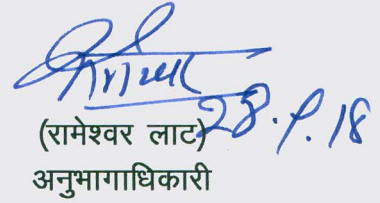 28.9.18
(रामेश्वर लाट)
अनुभागाधिकारी